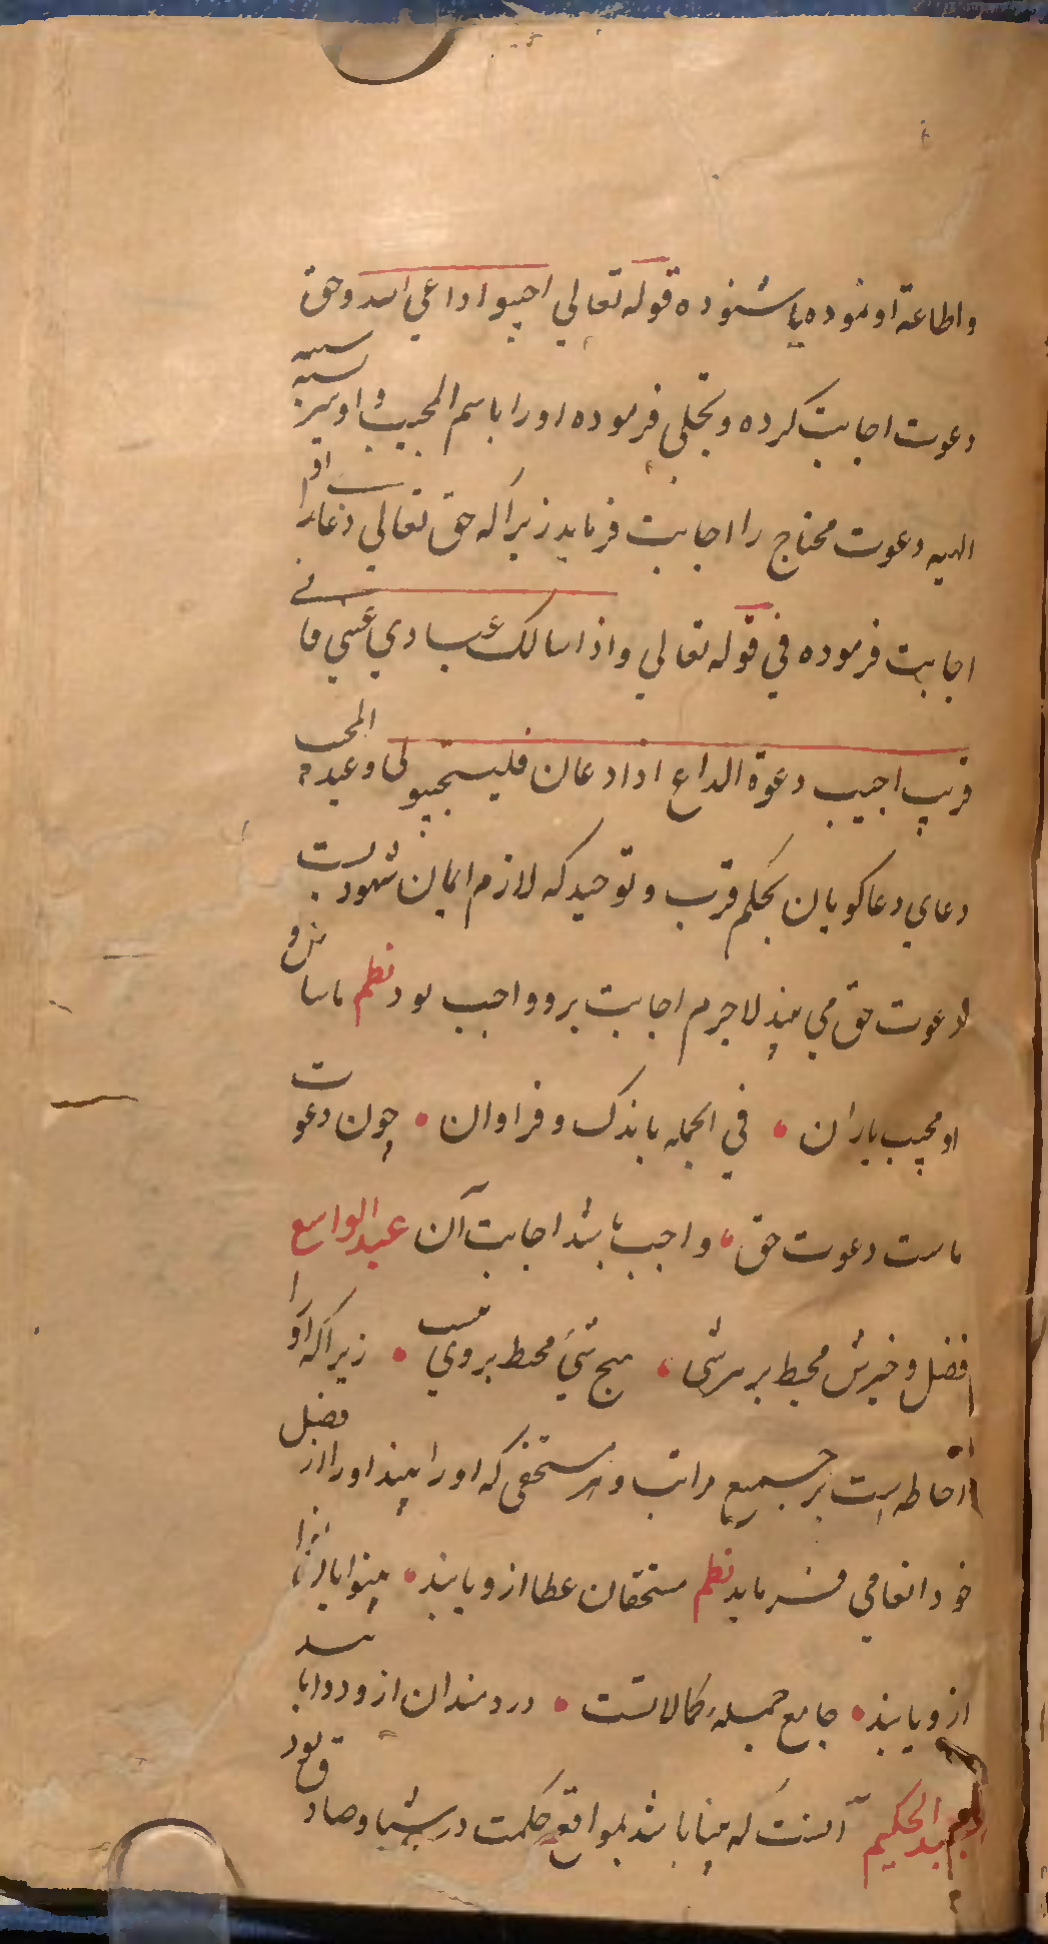 و اطاعة او نموده یا شنوده قوله تعالی اجیبوا داعی الله و حق
دعوت اجابت کرده و تجلی فرموده او را باسم المجیب و او نیز
الهیه دعوت محتاج را اجابت فرماید زیرا که حق تعالی دعا را
اجابت فرموده فی قوله تعالی و اذا سالک عبادی عنی فانی
قریب اجیب دعوة الداع اذا دعان فلیستجیبوا لی و عبد المجیب
دعای دعا کویان بحکم قرب و توحید که لازم ایمان شهودیست
دعوت حق می بیند لاجرم اجابت برو واجب بود نظم
او مجیب یاران • فی الجمله باندک و فراوان • چون دعوت
ماست دعوت حق • واجب باشد اجابت آن عبد الواسع
فضل و خیرش محیط بر هر شی • هیچ شیٔ محیط بر وی نیست • زیرا که او را
احاطه است بر جمیع مراتب و هر مستحقی که او را بیند او را از فضل
خود انعامی فرماید نظم مستحقان عطا ازو یابند • بینوایان نوا
ازو یابند • جامع جمله کمالاتست • دردمندان ازو دوا یابند
عبد الحکیم آنست که بینا باشد بمواقع حکمت در اشیا و صادق بود